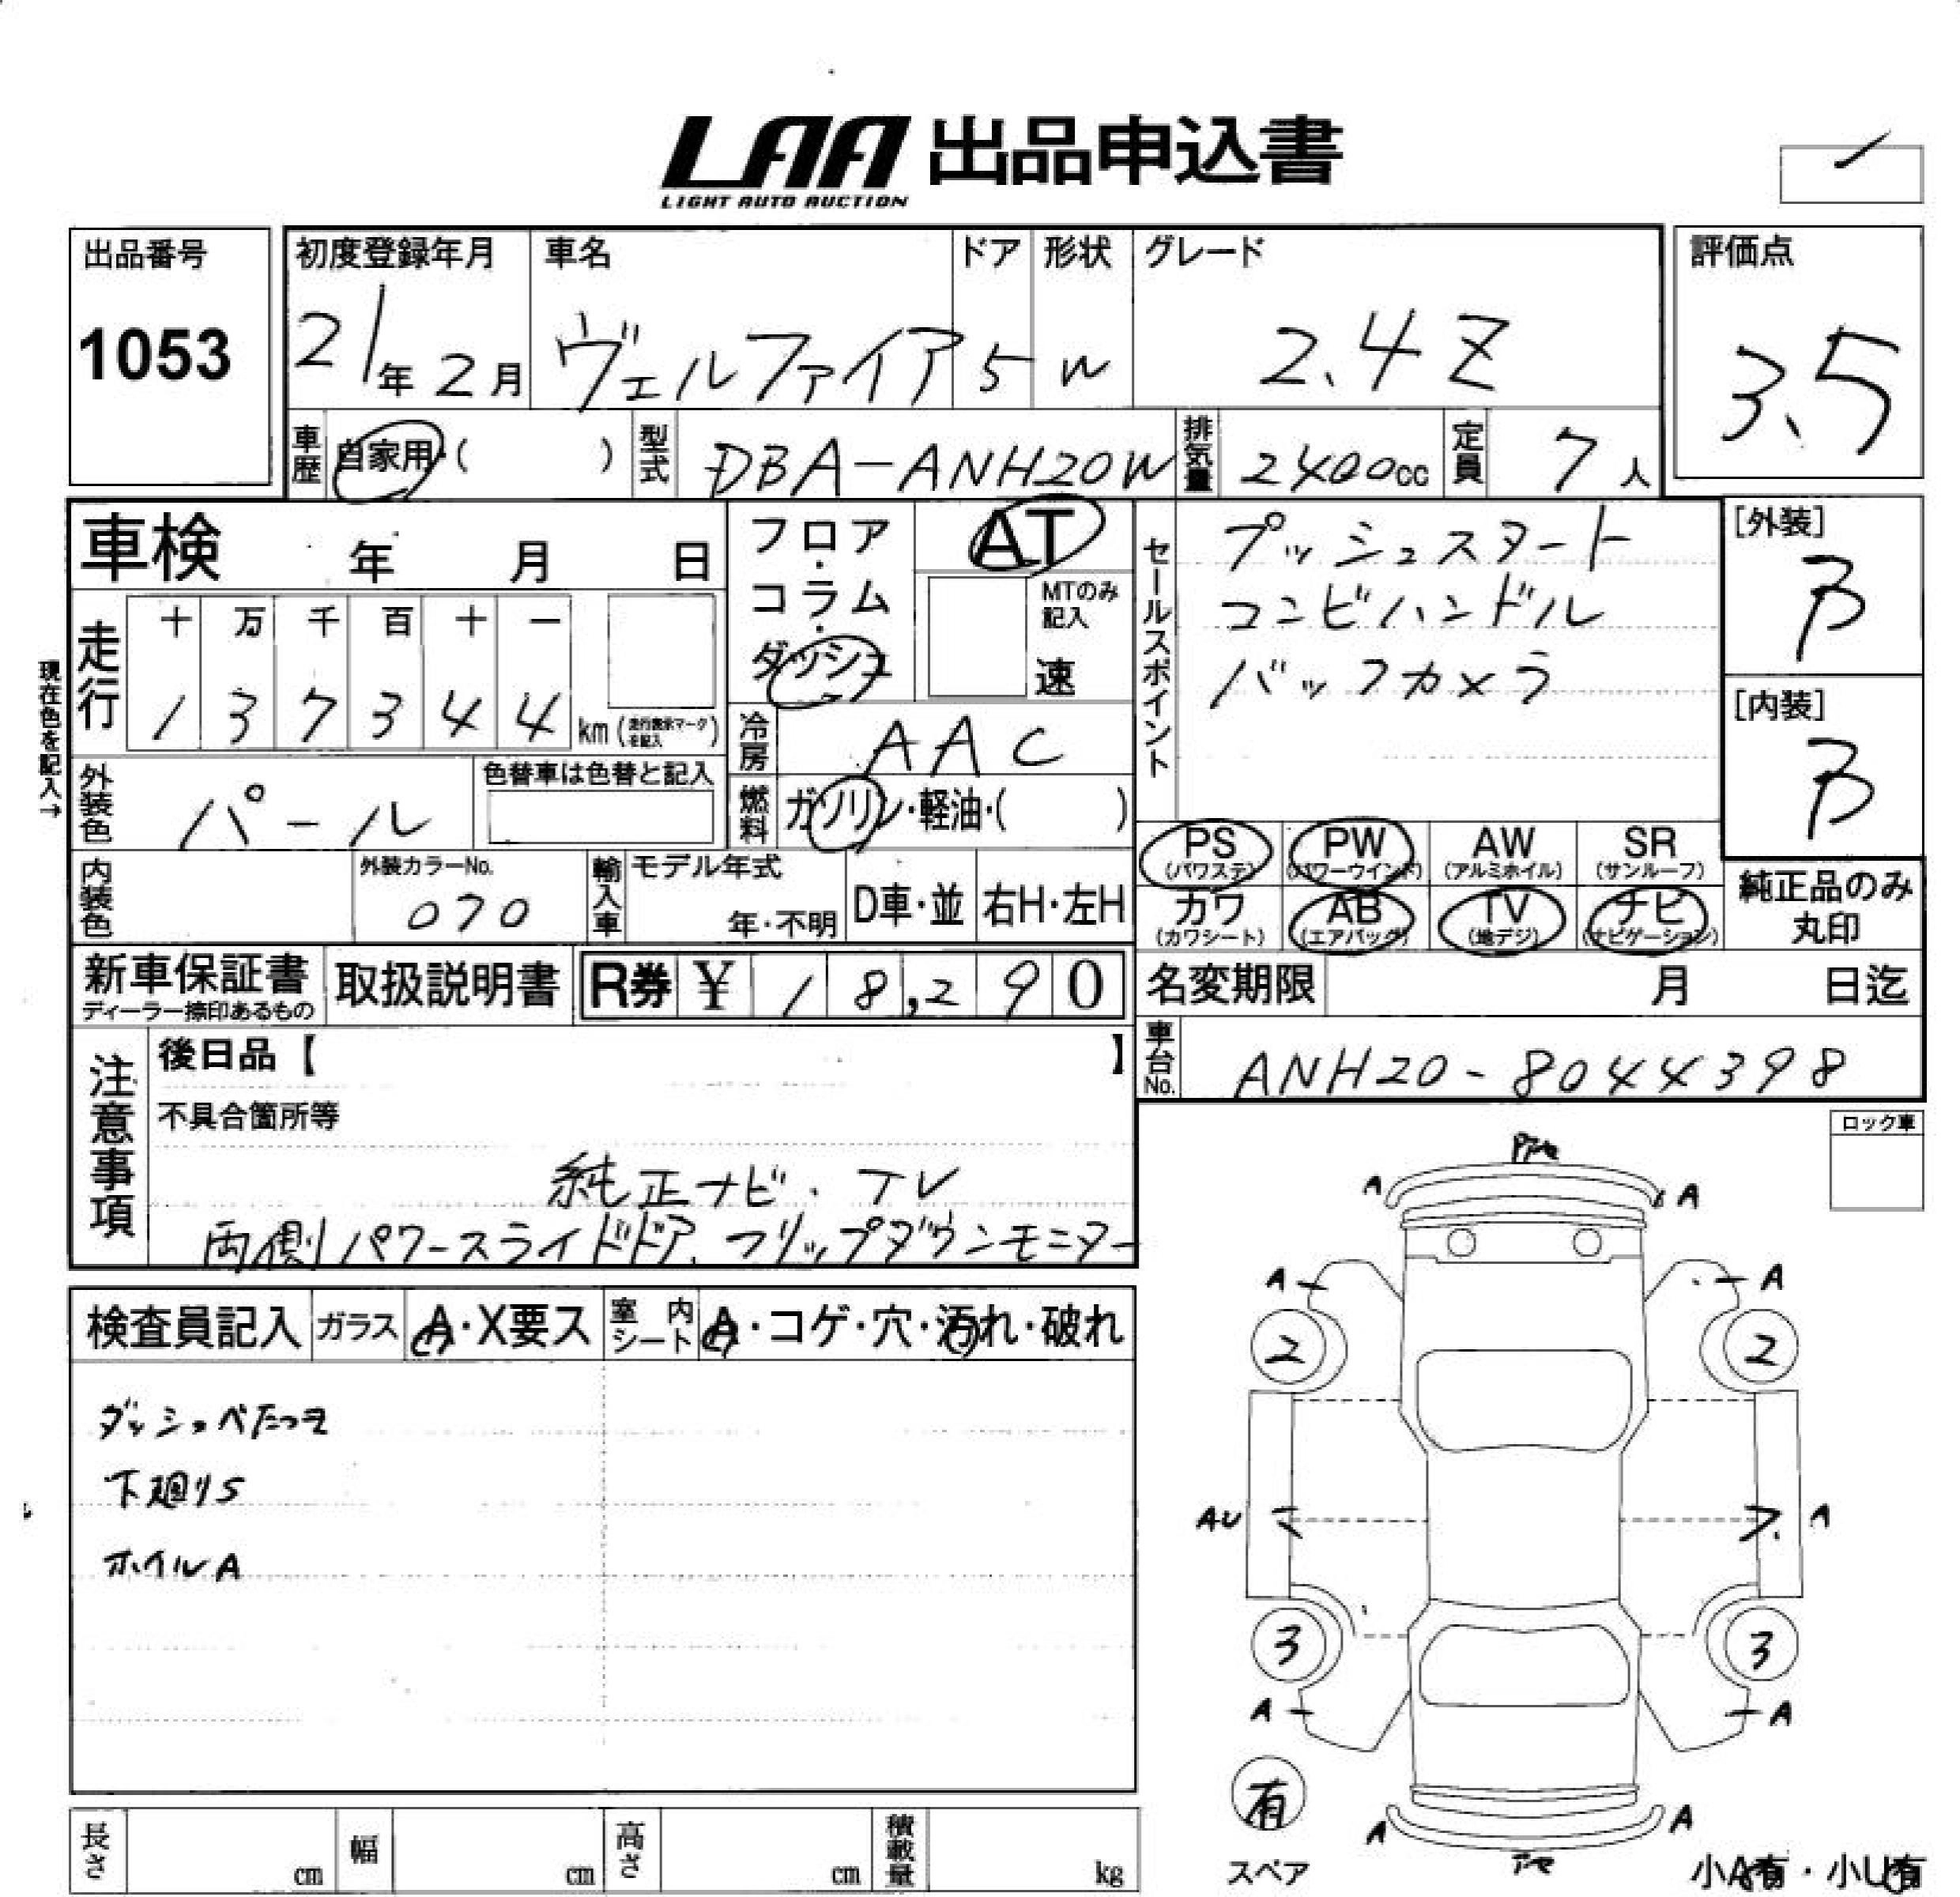 LAA 出品申込書
LIGHT AUTO AUCTION
出品番号
1053
初度登録年月
21年2月
車名
ヴェルファイア
ドア
5
形状
W
グレード
2.4Z
評価点
3.5
車歴
自家用・( )
型式
DBA-ANH20W
排気量
2400cc
定員
7人
車検 年 月 日
走行
十 万 千 百 十 一
1 3 7 3 4 4 km (走行表示マークを記入)
現在色を記入→
外装色
パール
色替車は色替と記入
内装色
外装カラーNo.
070
フロア・コラム・ダッシュ
AT
MTのみ記入
速
冷房
AAC
燃料
ガソリン・軽油・( )
輸入車
モデル年式
年・不明
D車・並
右H・左H
セールスポイント
プッシュスタート
コンビハンドル
バックカメラ
[外装]
B
[内装]
B
PS (パワステ)
PW (パワーウインド)
AW (アルミホイル)
SR (サンルーフ)
カワ (カワシート)
AB (エアバッグ)
TV (地デジ)
ナビ (ナビゲーション)
純正品のみ丸印
新車保証書
ディーラー捺印あるもの
取扱説明書
R券 ¥ 18,290
名変期限 月 日迄
車台No.
ANH20-8044398
注意事項
後日品【 】
不具合箇所等
純正ナビ、TV
両側パワースライドドア、フリップダウンモニター
ロック車
検査員記入
ガラス
A・X要ス
室内シート
A・コゲ・穴・汚れ・破れ
ダッシュベたつき
下廻りS
ホイルA
A
A
A
A
2
2
AU
A
3
3
A
A
有
スペア
A
A
小A有・小U有
長さ cm
幅 cm
高さ cm
積載量 kg